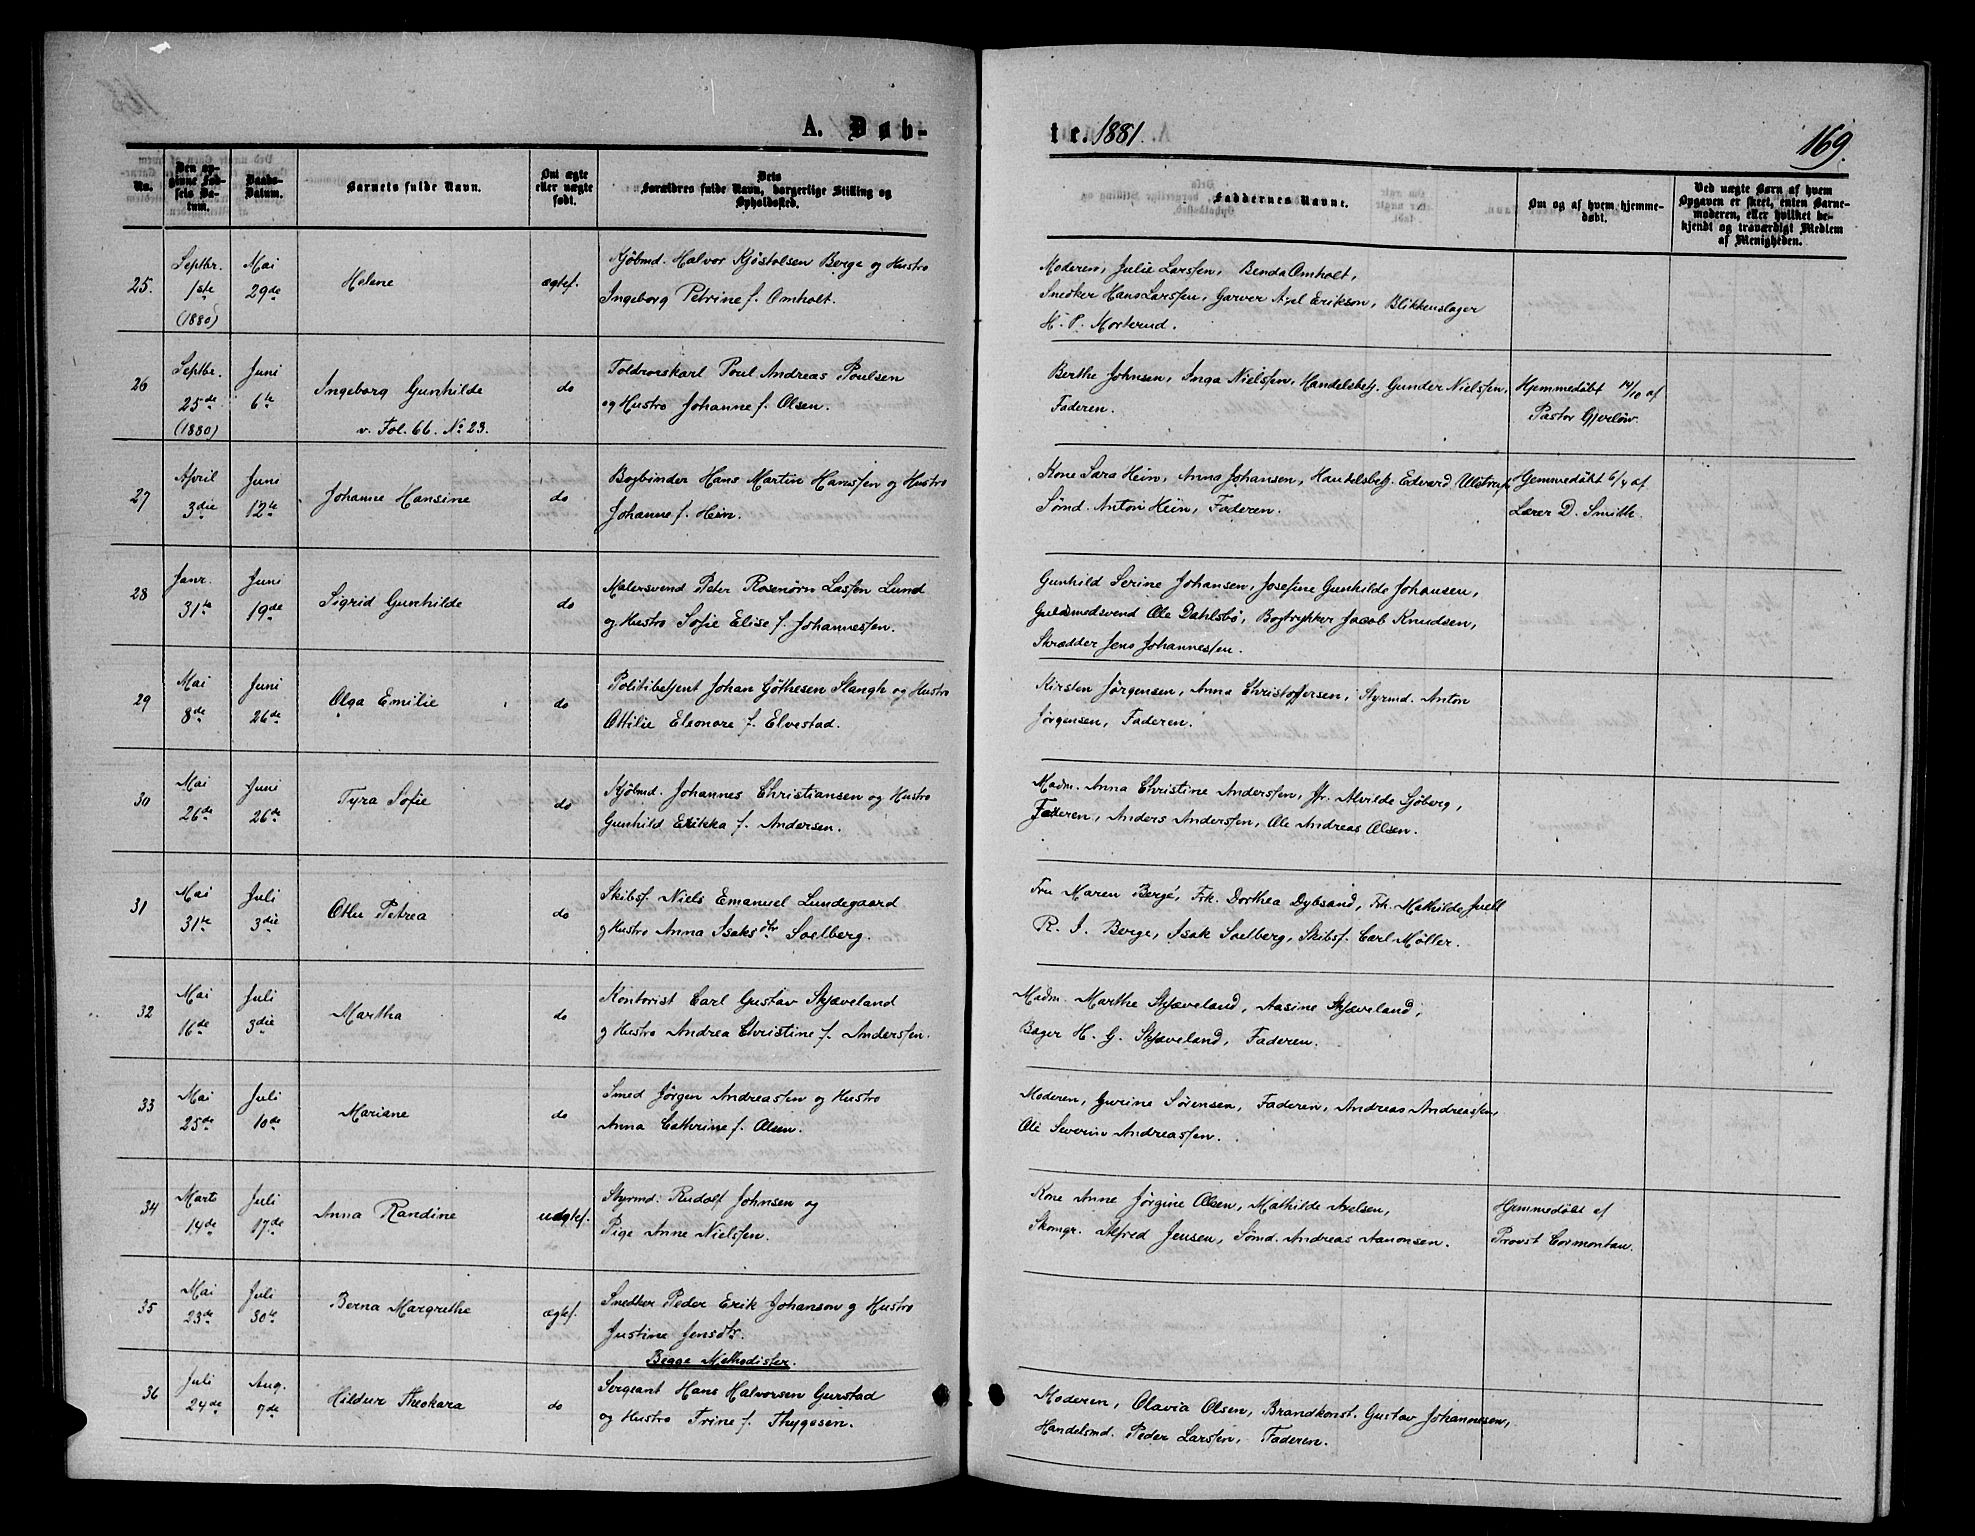 A. Døb-
te. 1881.
169.
No.
Den opgivne Fødsels Datum.
Daabs-Datum.
Barnets fulde Navn.
Om ægte eller uægte født.
Dets Forældres fulde Navn, borgerlige Stilling og Opholdssted.
Faddernes Navne.
Om og af hvem hjemmedøbt.
Ved uægte Børn af hvem Opgaven er skeet, enten Barnemoderen, eller hvilket bekjendt og troværdigt Medlem af Menigheden.
25.
Septbr. 1ste (1880)
Mai 29de
Helene
ægtef.
Kjøbmd. Halvor Kjøstolsen Berge og Hustro
Ingeborg Petrine f. Omholt.
Moderen, Julie Larssen, Benda Omholt,
Snedker Hans Larssen, Garver Axel Erikson, Blikkenslager
H. P. Morterud.
26
Septbr. 25de (1880)
Juni 6te
Ingeborg Gunhilde
v. Fol. 66. No 23.
do
Toldrorskarl Poul Andreas Poulsen
og Hustro Johanne f. Olsen.
Berthe Johnsen, Inga Nielssen, Handelsbetj. Gunder Nielssen,
Faderen.
Hjemmedøbt 14/10 af
Pastor Gjerløw.
27
April 3die
Juni 12te
Johanne Hansine
do
Bogbinder Hans Martin Hanssen og Hustro
Johanne f. Hein.
Kone Sara Hein, Anna Johansen, Handelsbetj. Edvard Ulstrup,
Sømd. Anton Hein, Faderen.
Hjemmedøbt 6/4 af
Lærer D. Smith.
28
Janr. 31te
Juni 19de
Sigrid Gunhilde
do
Malersvend Peter Rosenørn Lasson Lund
og Hustro Sofie Elise f. Johannessen.
Gunhild Serine Johansen, Josefine Gunhilde Johansen,
Guldsmedsvend Ole Dahlsbø, Bogtrykker Jacob Knudsen,
Skrædder Jens Johannessen.
29
Mai 8de
Juni 26de
Olga Emilie
do
Politibetjent Johan Göthesen Stangh og Hustro
Ottilie Eleonore f. Elvestad.
Kirsten Jørgensen, Anna Christoffersen, Styrmd. Anton
Jørgensen, Faderen.
30
Mai 26de
Juni 26de
Tyra Sofie
do
Kjøbmd. Johannes Christiansen og Hustro
Gunhild Erikka f. Andersen.
Madm. Anna Christine Anderssen, Fr. Alvilde Sjøberg,
Faderen, Anders Anderssen, Ole Andreas Olsen.
31
Mai 31te
Juli 3die
Otlu Petrea
do
Skibsf. Niels Emanuel Lundegaard
og Hustro Anna Isaksdtr Soelberg.
Fru Maren Berge, Frk. Dorthea Dybsand, Frk. Mathilde Juell
R. I. Berge, Isak Soelberg, Skibsf. Carl Møller.
32
Mai 16de
Juli 3die
Martha
do
Kontorist Carl Gustav Skjæveland
og Hustro Andrea Christine f. Anderssen.
Madm. Marthe Skjæveland, Aasine Skjæveland,
Bager H. G. Skjæveland, Faderen.
33
Mai 25de
Juli 10de
Mariane
do
Smed Jørgen Andreassen og Hustro
Anna Cathrine f. Olsen.
Moderen, Gurine Sørensen, Faderen, Andreas Andreassen,
Ole Severin Andreassen.
34
Marts 14de
Juli 17de
Anna Randine
uægtef.
Styrmd. Rudolf Johnsen og
Pige Anne Nielssen.
Kone Anne Jørgine Olsen, Mathilde Axelsen,
Skomgr. Alfred Jensen, Sømd. Andreas Aanonsen.
Hjemmedøbt af
Provst Cormontan.
35
Mai 23de
Juli 30te
Berna Margrethe
ægtef.
Snedker Peder Erik Johanson og Hustro
Justine Jensdtr.
Begge Methodister.
36
Juli 24de
Aug. 7de
Hildur Theokara
do
Sergeant Hans Halvorsen Gurstad
og Hustro Trine f. Thygesen.
Moderen, Olavia Olsen, Brandkonst. Gustav Johannesen,
Handelsmd. Peder Larssen, Faderen.